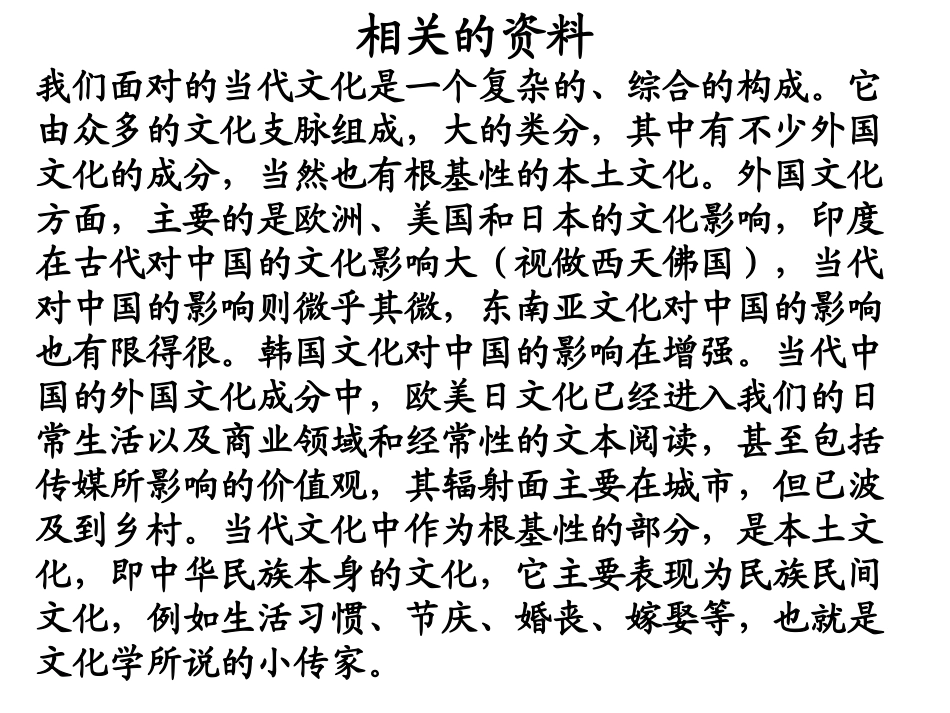 相关的资料
我们面对的当代文化是一个复杂的、综合的构成。它
由众多的文化支脉组成，大的类分，其中有不少外国
文化的成分，当然也有根基性的本土文化。外国文化
方面，主要的是欧洲、美国和日本的文化影响，印度
在古代对中国的文化影响大（视做西天佛国），当代
对中国的影响则微乎其微，东南亚文化对中国的影响
也有限得很。韩国文化对中国的影响在增强。当代中
国的外国文化成分中，欧美日文化已经进入我们的日
常生活以及商业领域和经常性的文本阅读，甚至包括
传媒所影响的价值观，其辐射面主要在城市，但已波
及到乡村。当代文化中作为根基性的部分，是本土文
化，即中华民族本身的文化，它主要表现为民族民间
文化，例如生活习惯、节庆、婚丧、嫁娶等，也就是
文化学所说的小传家。